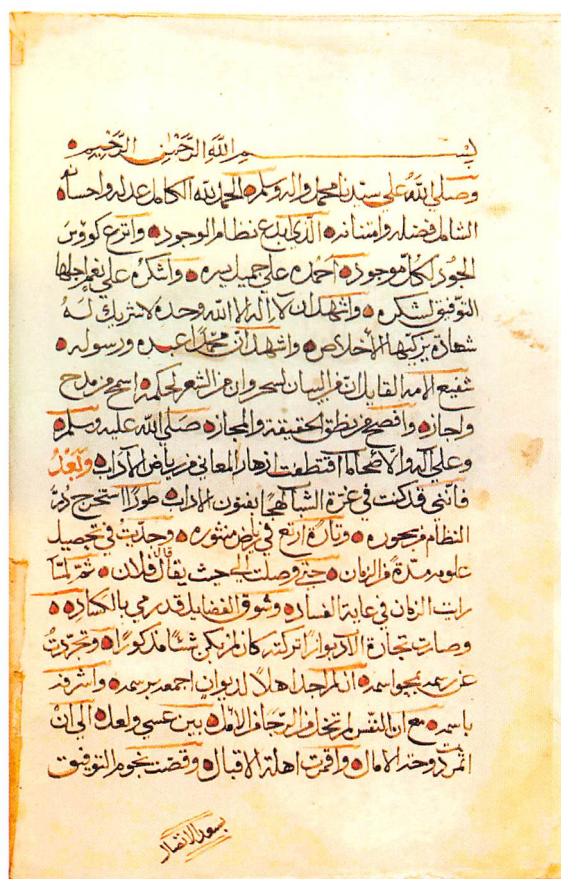 بسم الله الرحمن الرحيم
وصلي الله علي سيدنا محمد واله وسلم الحمد لله الكامل عدله واحسانه
الشامل فضله وامتنانه الذي ابدع نظام الوجود واترع كووس
الجود لكل موجود احمده علي جميل بره واشكره علي نعم جلها
التوفيق لشكره واشهد ان لا اله الا الله وحده لا شريك له
شهادة يزكيها الاخلاص واشهد ان محمدا عبده ورسوله
شفيع الامه القايل ان من البيان لسحر وان من الشعر لحكمه اسمح من مدح
واجازه وافصح من نطق بالحقيقة والمجاز صلي الله عليه وسلم
وعلي آله والاصحاب ما اقتطفت ازهار المعاني من رياض الاداب وبعد
فانني قد كنت في غرة الشباب لهجا بفنون الاداب طورا استخرج در
النظام من بحوره وتارة ارتع في رياض منثوره وجديت في تحصيل
علومه مدة من الزمان حتي وصلت الي حيث يقال قال فلان ثم لما
رايت الزمان في غاية الفساد وسوق الفضايل قد رمي بالكساد
وصارت تجارة الاداب بوارا تركته كان لم يكن شيئا مذكورا وتجردت
عن سمه بمحو اسمه اذ لم اجد اهلا لديوان اجمعه برسمه واشرفه
باسمه مع ان النفس لم تخل من الرجا والامل بين عسي ولعل الي ان
اثمرت دوحة الامال واقمرت اهلة الاقبال وقضت نجوم التوفيق
بسعد الاتصال